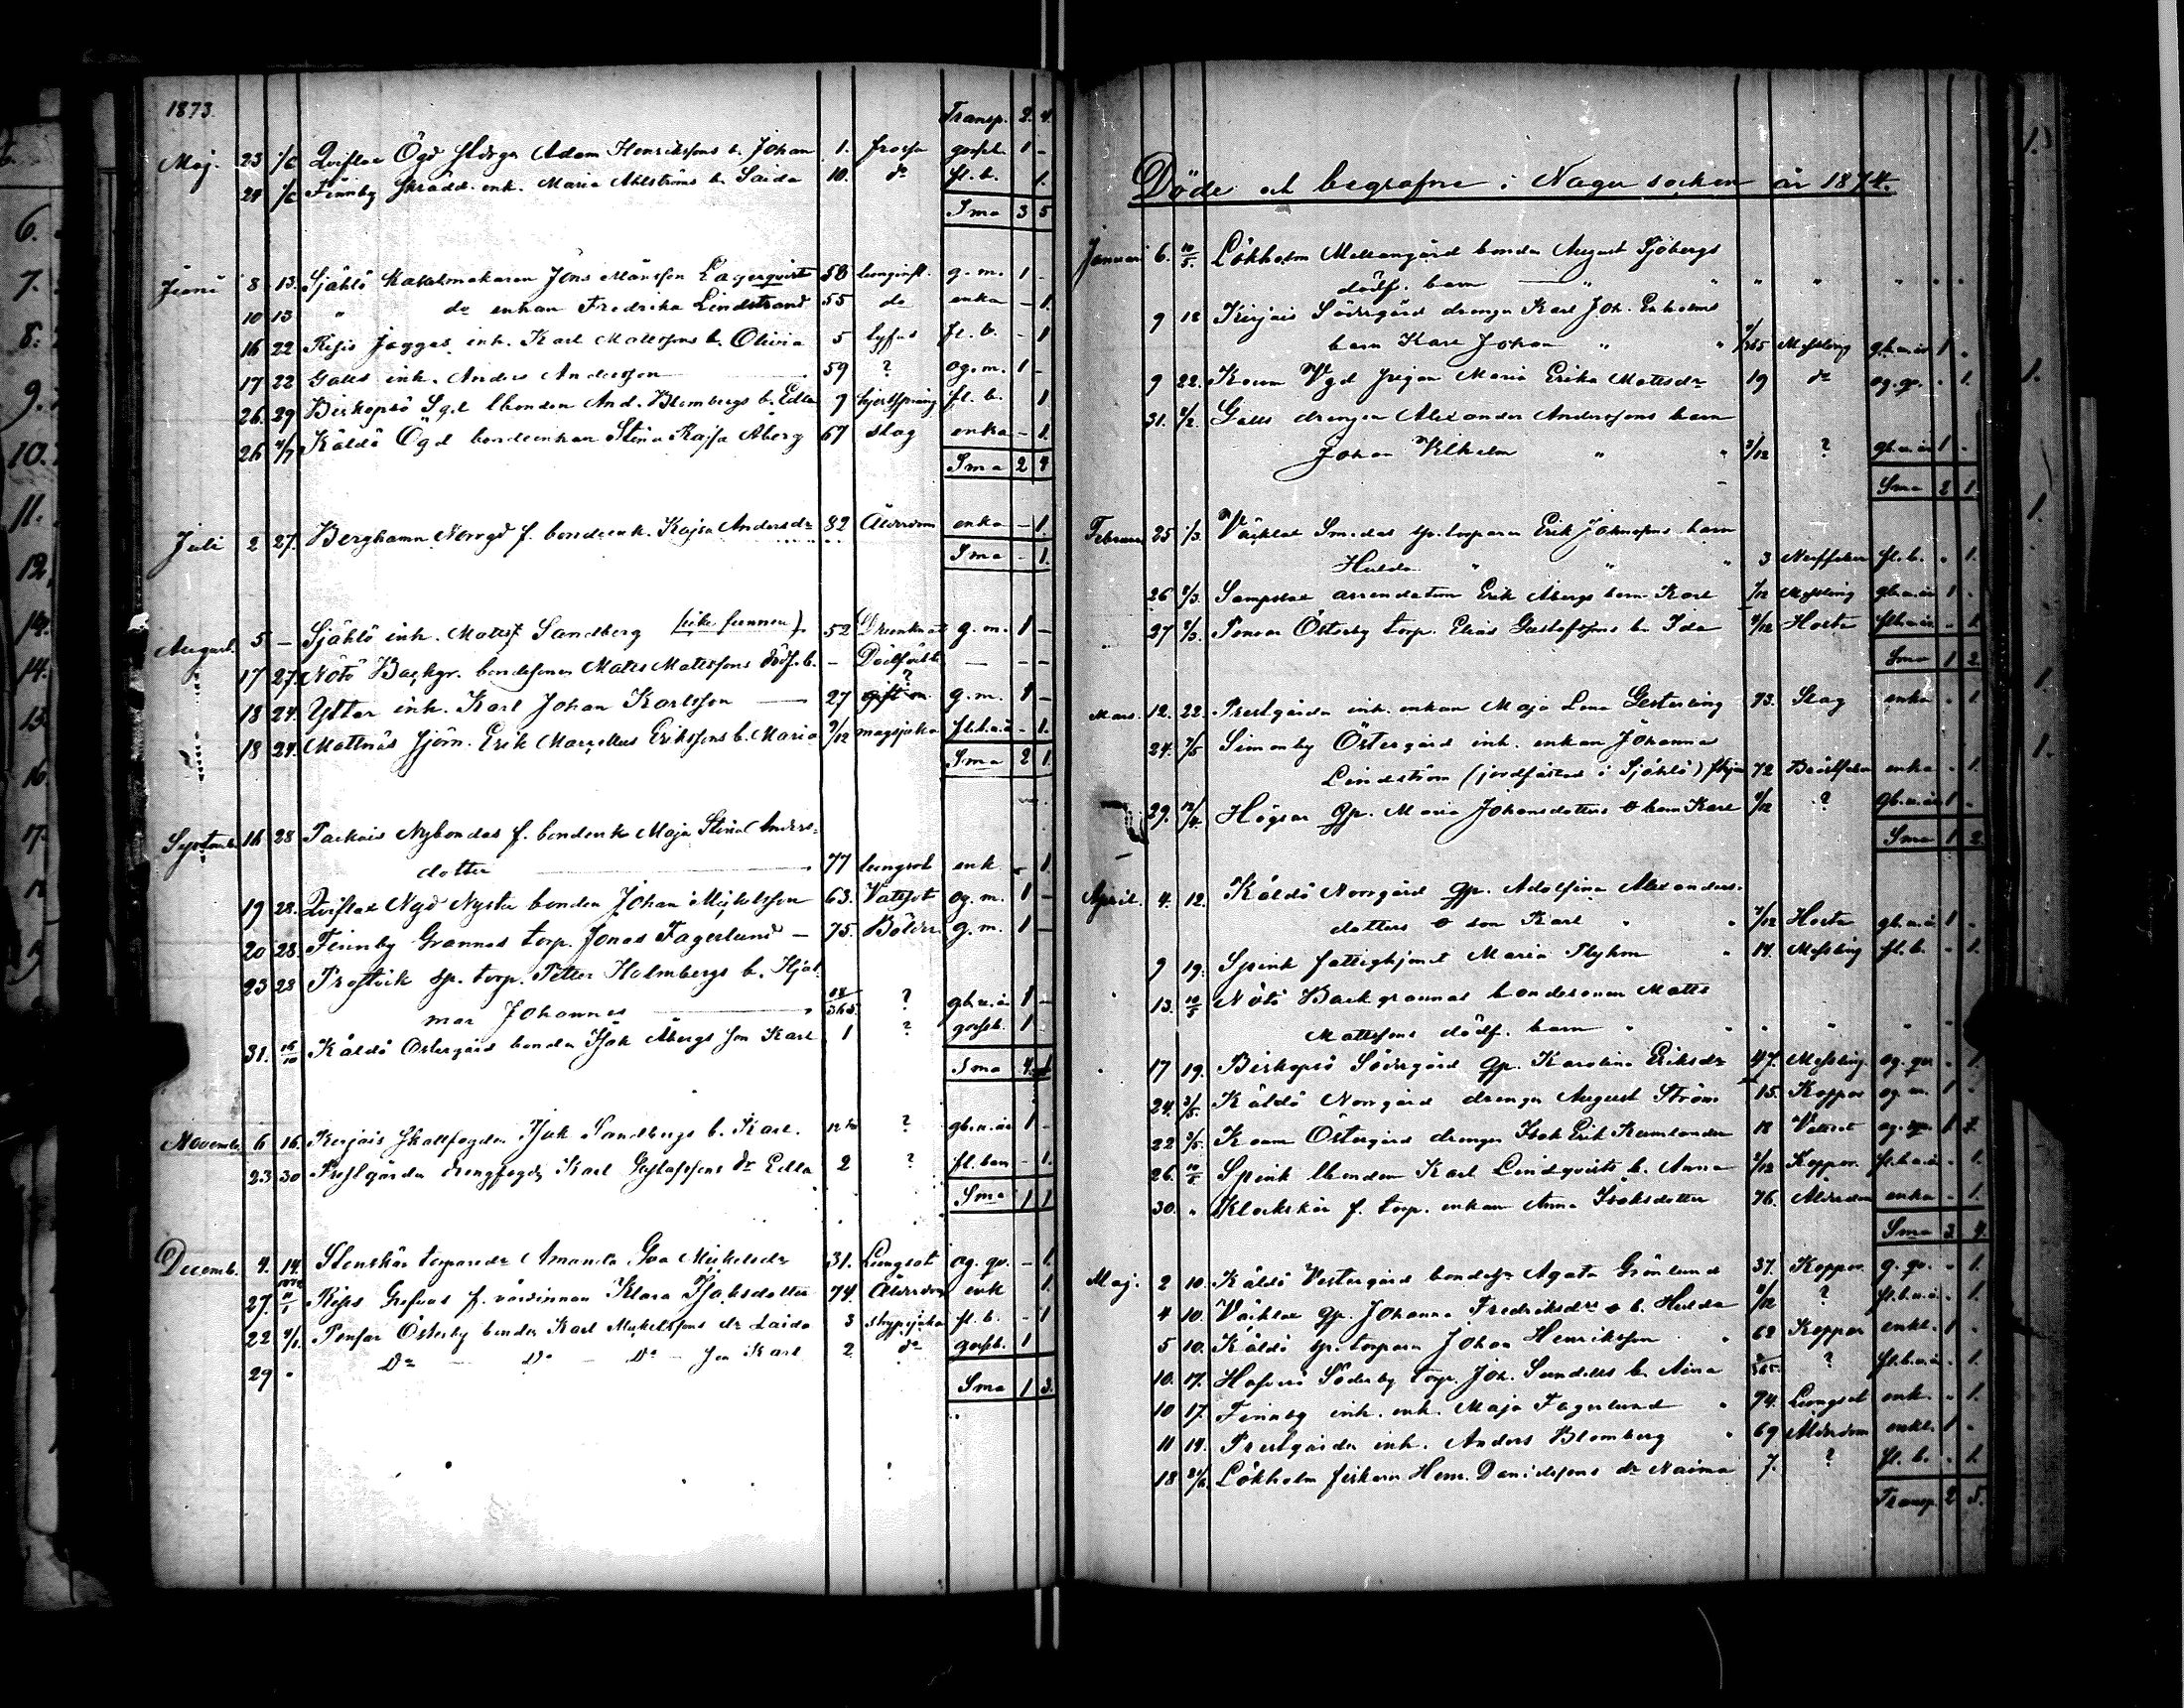 1873. Transp. 2. 4.
Maj. 23 1/6 Qviflax Ögd Adam Henrikssons b. Johan 1. frossa gosseb. 1 -
24 1/6 Finnby skrädd. enk. Maria Ahlströms b. Saida 10. do fl. b. 1.
Sma 3 5
Juni 8 13. Själö kakelmakaren Jöns Månsson Lagerqvist 58 lunginfl. g. m. 1 -
10 13 " do enkan Fredrika Lindstrand 55 do enka - 1.
16 22 Risis Jägges inh. Karl Mattssons b. Olivia 5 tyfus fl. b. - 1
17 22 Galts inh. Anders Andersson 59 ? og. m. 1 -
26. 29 Biskopsö Sgd lbonden And. Blombergs b. Edla 7 hjertsprång fl. b. 1
26 4/7 Käldö Ögd bondeenkan Stina Kajsa Åberg 67 slag enka - 1.
Sma 2 4
Juli 2 27. Berghamn Norrgd f. bondeenk. Kajsa Andersdr 82 Ålderdom enka - 1.
Sma - 1.
August. 5 - Själö inh. Mattsf Sandberg (icke funnen) 52 Drunknat g. m. 1 -
17 27. Nötö Backgr. bondesonen Matts Mattssons dödf. b. - Dödfödt - - -
18 24. Ytter inh. Karl Johan Karlsson 27 ? g. m. 1 -
18 24. Mattnäs Erik Marcellus Erikssons b. Maria 9/12 magsjuka fl. b. u. å - 1.
Sma 2 1.
Septemb. 16 28 Parkais Nybondas f. bondenk. Maja Stina Anders-
dotter 77 lungsot enk - 1
19 28. Qviflax Ngd Nysta bonden Johan Mickelsson 63. Vattsot og. m. 1 -
20 28. Finnby Grannas torp. Jonas Fagerlund - 75. Bölder g. m. 1 -
23 28 Prostvik sp. torp. Petter Holmbergs b. Hjal-
mar Johannes 18/365 ? gb. u. å 1 -
31. 15/10 Käldö Östergård bonden Isak Åbergs son Karl 1 ? gosseb. 1
Sma 4. 1
November 6 16. Kirjais skattfogden Isak Sandbergs b. Karl. ? gb. u. år 1 -
23 30 Prestgården drengfogden Karl Gustafssons dr Edla 2 ? fl. barn - 1.
Sma 1 1
Decemb. 4. 14. Stenskär torparedr Amanda Eva Mickelsdr 31. Lungsot og. qv. - 1.
27. 11/1 Risis Grefvas f. värdinnan Klara Isaksdotter 74. Ålderdom enk 1.
22 4/1. Pensar Österby bonden Karl Mickelssons dr Laida 3 strypsjuka fl. b. - 1
29 " Do - Do - Do - son Karl 2 do gosseb. 1
Sma 1 3.
Döde och begrafne i Nagu socken år 1874.
Januari 6. 10/5. Lökholm Mellangård bonden August Sjöbergs
dödf. barn " " " " " "
9 12 Kirjais Södergård drengen Karl Joh. Enholms
barn Karl Johan " " /365 Messling gb. u. år 1 .
9 22. Korum Vgd pigan Maria Erika Mattsdr 19 do og. qv. . 1.
31. 2/2. Galts drengen Alexander Anderssons barn
Johan Vilhelm " " 3/12 ? gb. u. år 1 .
Sma 2 1.
Februari 25 1/3. Väcklax Smedas sp. torparen Erik Johanssons barn
Hulda " " " 3 Nerffeber fl. b. . 1.
26 8/3. Sampolax arrendatorn Erik Åbergs barn Karl 1/12 Messling gb. u. år 1 .
27 8/3. Pensar Österby torp. Elias Gustafssons b. Ida 4/12 Hosta fl. b. u. år . 1.
Sma 1 2.
Mars. 12. 22. Prestgården inh. enkan Maja Lena Gesterling 73. Slag enka . 1
24. 3/5 Simonby Östergård inh. enkan Johanna
Lindström (jordfästad i Själö) 72 Bröstfeber enka . 1.
29. 12/4. Högsar qp. Maria Johansdotters o barn Karl 4/12 ? gb. u. år 1 .
Sma 1 2
April. 4. 12. Käldö Norrgård qp. Adolfina Alexanders-
dotters o son Karl " " 4/12 Hosta gb. u. å 1 .
9 19. Spink fattighjonet Maria Flykm " 14. Messling fl. b. . 1.
13. 10/5 Nötö Backgrannas bondesonen Matts
Mattssons dödf. barn " " " " " .
17 19. Biskopsö Södergård qp. Karolina Eriksdr 47. Messling og. qv . 1.
24. 3/5. Käldö Norrgård drengen August Ström 15. Koppor og. m. 1 .
22 3/5. Korum Östergård drengen Isak Erik Kumlander 18 Vattsot og. m. 1
26. 10/5 Spink lbonden Karl Lindqvists b. Anna 2/12 Koppor fl. b. u. å . 1.
30. " Klockskär f. torp. enkan Anna Isaksdotter 76. Ålderdom enka . 1.
Sma 3 4.
Maj. 2 10. Käldö Vestergård Agata Grönlund 37. Koppor g. qv. . 1.
4 10. Väcklax qp. Johanna Fredriksdrs o b. Hulda 8/12 ? fl. b. u. å. . 1.
5 10. Käldö sp. torparen Johan Henriksson " 62 Koppor enkl. 1 .
10. 17. Höfsar Söderby torp. Joh. Sundells b. Aina /365. ? fl. b. u. å . 1.
10 17. Finnby inh. enk. Maja Fagerlund " 74. Lungsot enk. . 1.
11 14. Prestgården inh. Anders Blomberg " 69 Ålderdom enkl. 1 .
18 24/5. Lökholm fiskaren Henr. Danielssons dr Naima 7. ? fl. b. . 1.
Transp. 2 5.